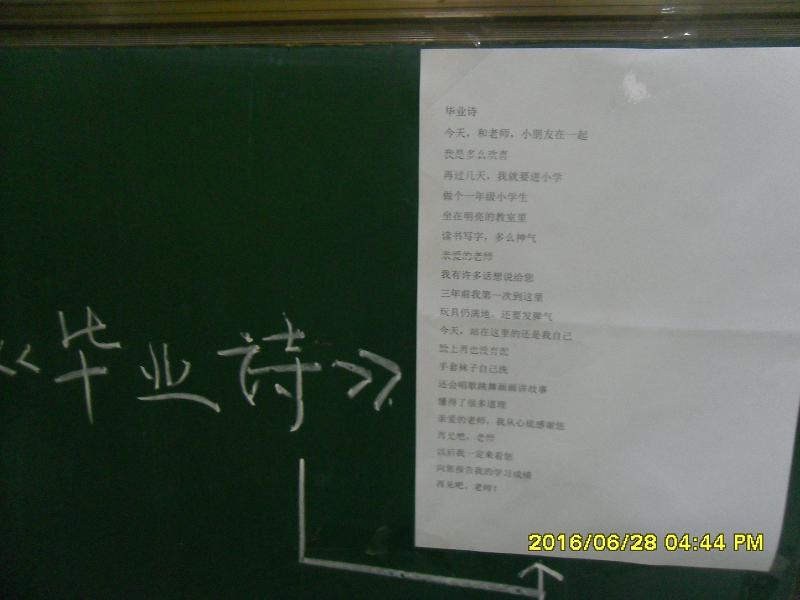 《毕业诗》
毕业诗
今天，和老师，小朋友在一起
我是多么欢喜
再过几天，我就要进小学
做个一年级小学生
坐在明亮的教室里
读书写字，多么神气
亲爱的老师
我有许多话想说给您
三年前我第一次到这里
玩具仍满地，还要发脾气
今天，站在这里的还是我自己
脸上再也没有泥
手套袜子自己洗
还会唱歌跳舞画画讲故事
懂得了很多道理
亲爱的老师，我从心底感谢您
再见吧，老师
以后我一定来看您
向您报告我的学习成绩
再见吧，老师！
2016/06/28 04:44 PM